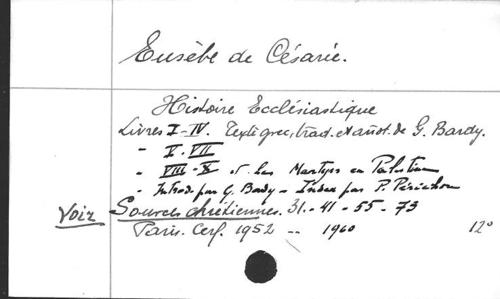 Eusèbe de Césarée.
Histoire Ecclésiastique
Livres I-IV. Texte grec, trad. et annot. de G. Bardy.
- V-VII
- VIII-X et Les Martyrs en Palestine
- Introd. par G. Bardy - Index par P. Périchon
Voir Sources chrétiennes. 31 - 41 - 55 - 73
Paris. Cerf. 1952 -- 1960 12°